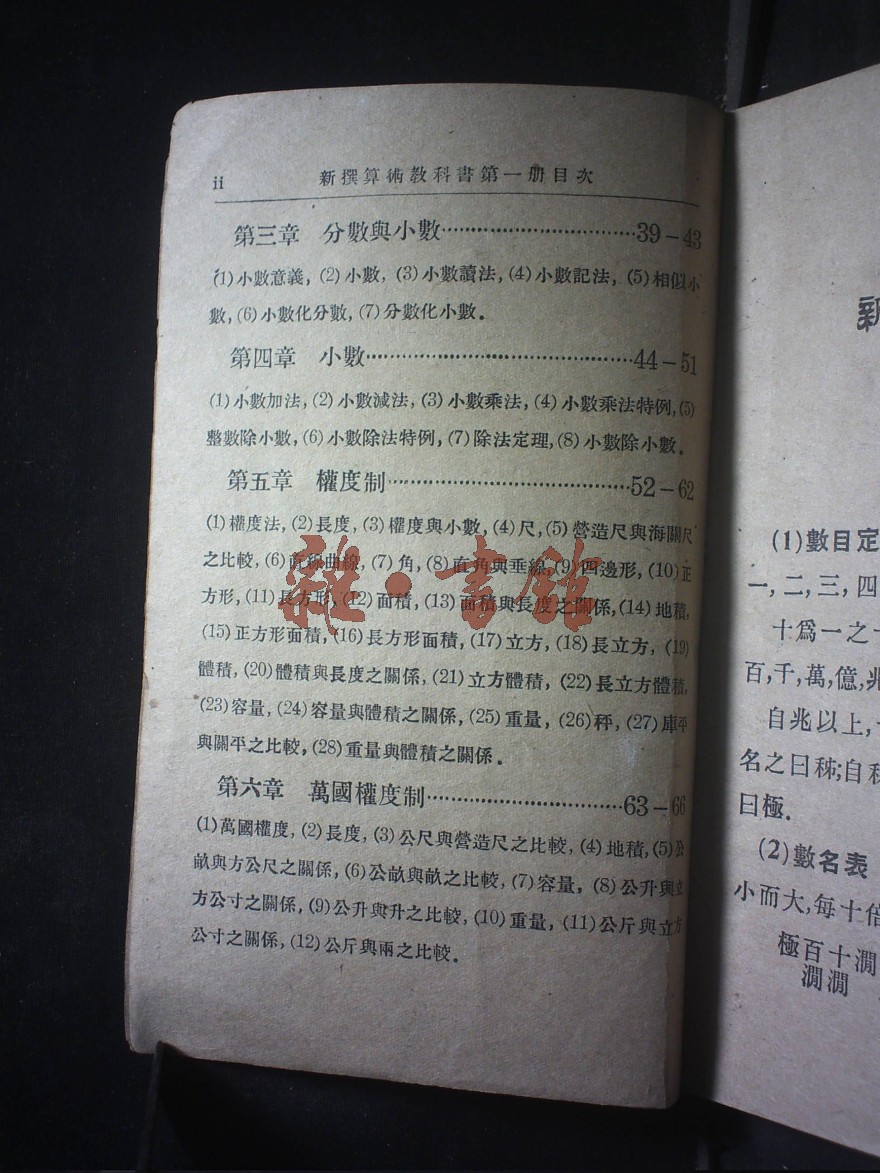 ii 新撰算術教科書第一册目次
第三章 分數與小數……………………39－43
(1)小數意義, (2)小數, (3)小數讀法, (4)小數記法, (5)相似小
數, (6)小數化分數, (7)分數化小數。
第四章 小數……………………44－51
(1)小數加法, (2)小數減法, (3)小數乘法, (4)小數乘法特例, (5)
整數除小數, (6)小數除法特例, (7)除法定理, (8)小數除小數。
第五章 權度制……………………52－62
(1)權度法, (2)長度, (3)權度與小數, (4)尺, (5)營造尺與海關尺
之比較, (6)直線曲線, (7)角, (8)直角與垂線, (9)四邊形, (10)正
方形, (11)長方形, (12)面積, (13)面積與長度之關係, (14)地積,
(15)正方形面積, (16)長方形面積, (17)立方, (18)長立方, (19)
體積, (20)體積與長度之關係, (21)立方體積, (22)長立方體積,
(23)容量, (24)容量與體積之關係, (25)重量, (26)秤, (27)庫平
與關平之比較, (28)重量與體積之關係。
第六章 萬國權度制……………………63－66
(1)萬國權度, (2)長度, (3)公尺與營造尺之比較, (4)地積, (5)公
畝與方公尺之關係, (6)公畝與畝之比較, (7)容量, (8)公升與立
方公寸之關係, (9)公升與升之比較, (10)重量, (11)公斤與立方
公寸之關係, (12)公斤與兩之比較。
雜·書館
(1)數目定
一, 二, 三, 四
十爲一之十
百, 千, 萬, 億, 兆
自兆以上,
名之曰秭; 自秭
曰極.
(2)數名表
小而大, 每十倍
極百十澗
澗澗